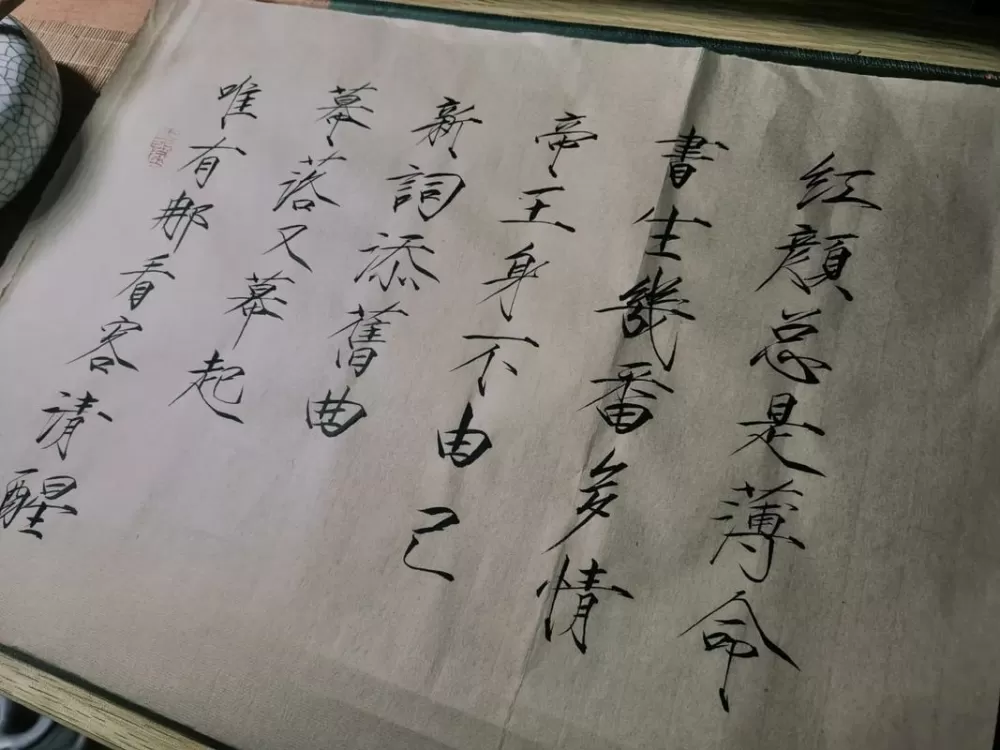 红颜总是薄命
書生幾番多情
帝王身不由己
新詞添舊曲
幕落又幕起
唯有那看客清醒